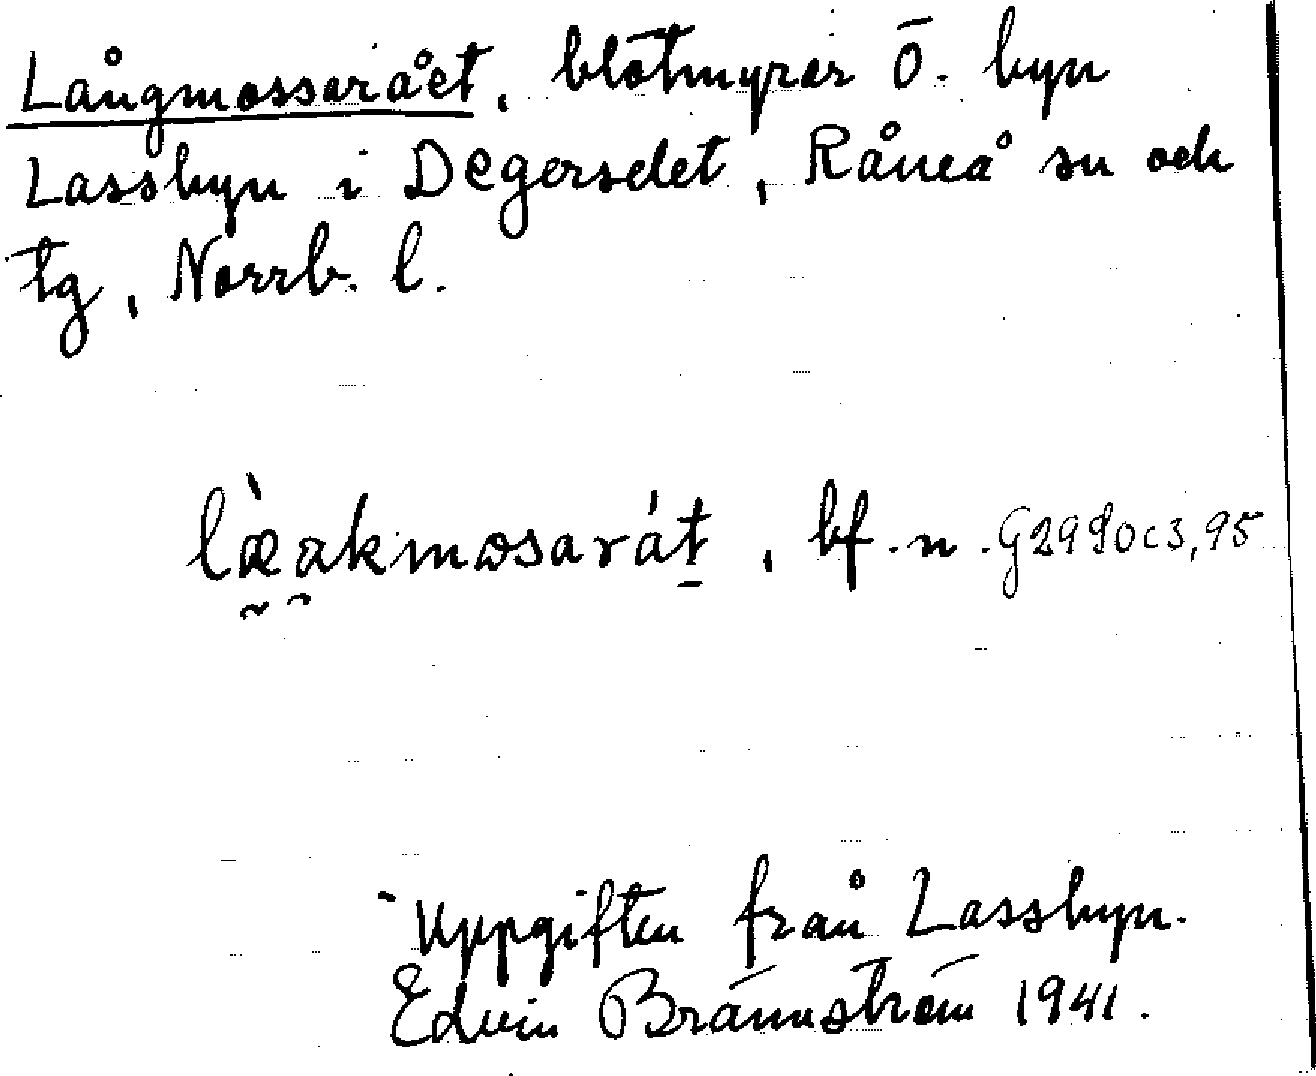 Långmossarået, blötmyrar Ö. byn
Lassbyn i Degerselet, Råneå sn och
tg, Norrb. l.
læ̀akmosarát, bf. n. G2990c3,95
Uppgiften från Lassbyn.
Edvin Brännström 1941.